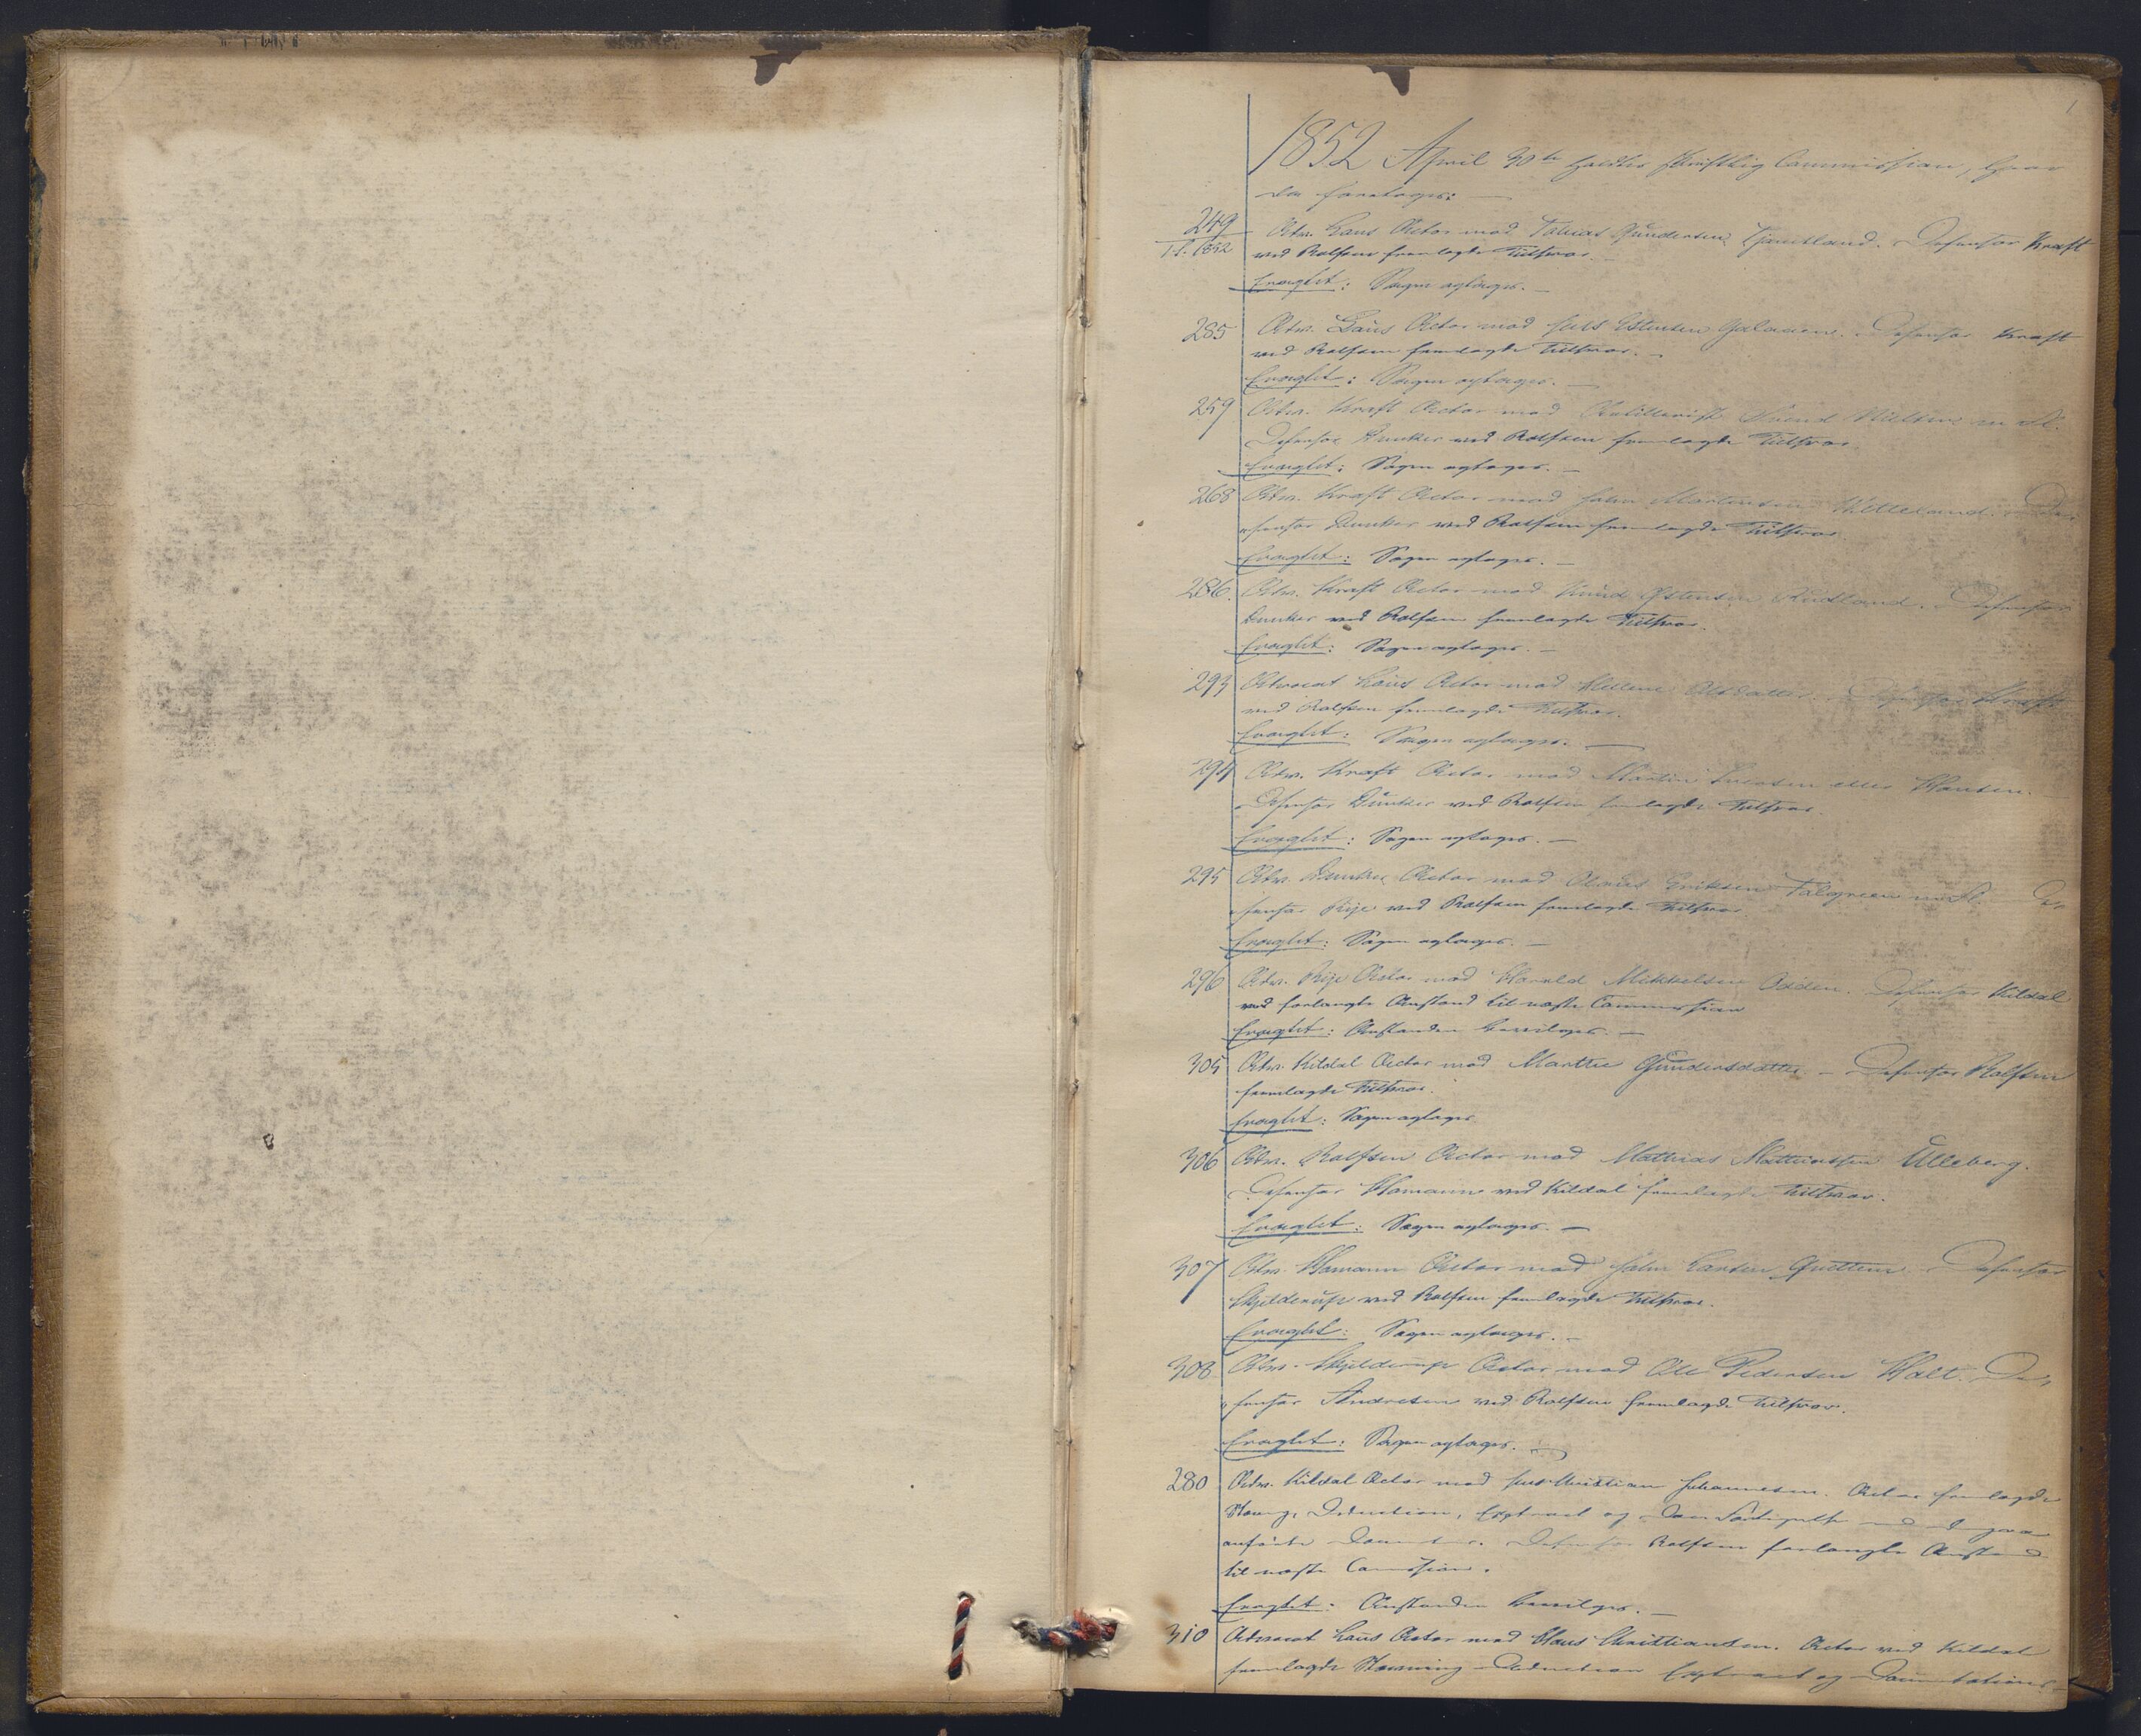 1
1852 April 30te holdtes skriftlig Commission, hvor
da foretoges:
249 Adv. Lous Actor mod Tobias Gundersen Tjomsland. Defensor Kraft
1.1. 1852 ved Rolfsen fremlagde Tilsvar.
Eragtet: Sagen optages. —
285 Adv. Lous Actor mod Jens Estensen Galaaen. Defensor Kraft
ved Rolfsen fremlagde Tilsvar. —
Eragtet: Sagen optages. —
259 Adv. Kraft Actor mod Artillerist Svend Nielsen m. fl.
Defensor Dunker ved Rolfsen fremlagde Tilsvar
Eragtet: Sagen optages. —
268 Adv. Kraft Actor mod John Martinsen Helleland. De-
fensor Dunker ved Rolfsen fremlagde Tilsvar.
Eragtet: Sagen optages. —
286. Adv. Kraft Actor mod Knud Østensen Rudland. Defensor
Dunker ved Rolfsen fremlagde Tilsvar.
Eragtet: Sagen optages. —
293 Advocat Lous Actor mod Hellene Olsdatter. Defensor Kraft
ved Rolfsen fremlagde Tilsvar.
Eragtet: Sagen optages. —
294 Adv. Kraft Actor mod Martin Larsen eller Hansen.
Defensor Dunker ved Rolfsen fremlagde Tilsvar.
Eragtet: Sagen optages. —
295 Adv. Dunker Actor mod Eriksen m. fl. De-
fensor Rije ved Rolfsen fremlagde Tilsvar
Eragtet: Sagen optages. —
296 Adv. Rije Actor mod Harald Mikkelsen Odden. Defensor Kildal
ved forlangte Anstand til næste Commission
Eragtet: Anstanden bevilges. —
305 Adv. Kildal Actor mod Marthe Gundersdatter — Defensor Rolfsen
fremlagde Tilsvar.
Eragtet: Sagen optages
306 Adv. Rolfsen Actor mod Mathias Mathiassen Ulleberg.
Defensor Homann ved Kildal fremlagde Tilsvar.
Eragtet: Sagen optages. —
307 Adv. Homann Actor mod John Larsen Defensor
Hjelderup ved Rolfsen fremlagde Tilsvar.
Eragtet: Sagen optages. —
308 Adv. Hjelderup Actor mod Ole Pedersen Holt. De-
fensor Andresen ved Rolfsen fremlagde Tilsvar.
Eragtet: Sagen optages. —
280 Adv. Kildal Actor mod Jens Christian Johannesen. Actor fremlagde
Stevng, Deduction, Extract og
anførte Defensor Rolfsen forlangte Anstand
til næste Comission.
Eragtet: Anstanden bevilges. —
310 Advocat Lous Actor mod Hans Christiansen. Actor ved Kildal
fremlagde Stevning Deduction Extract og